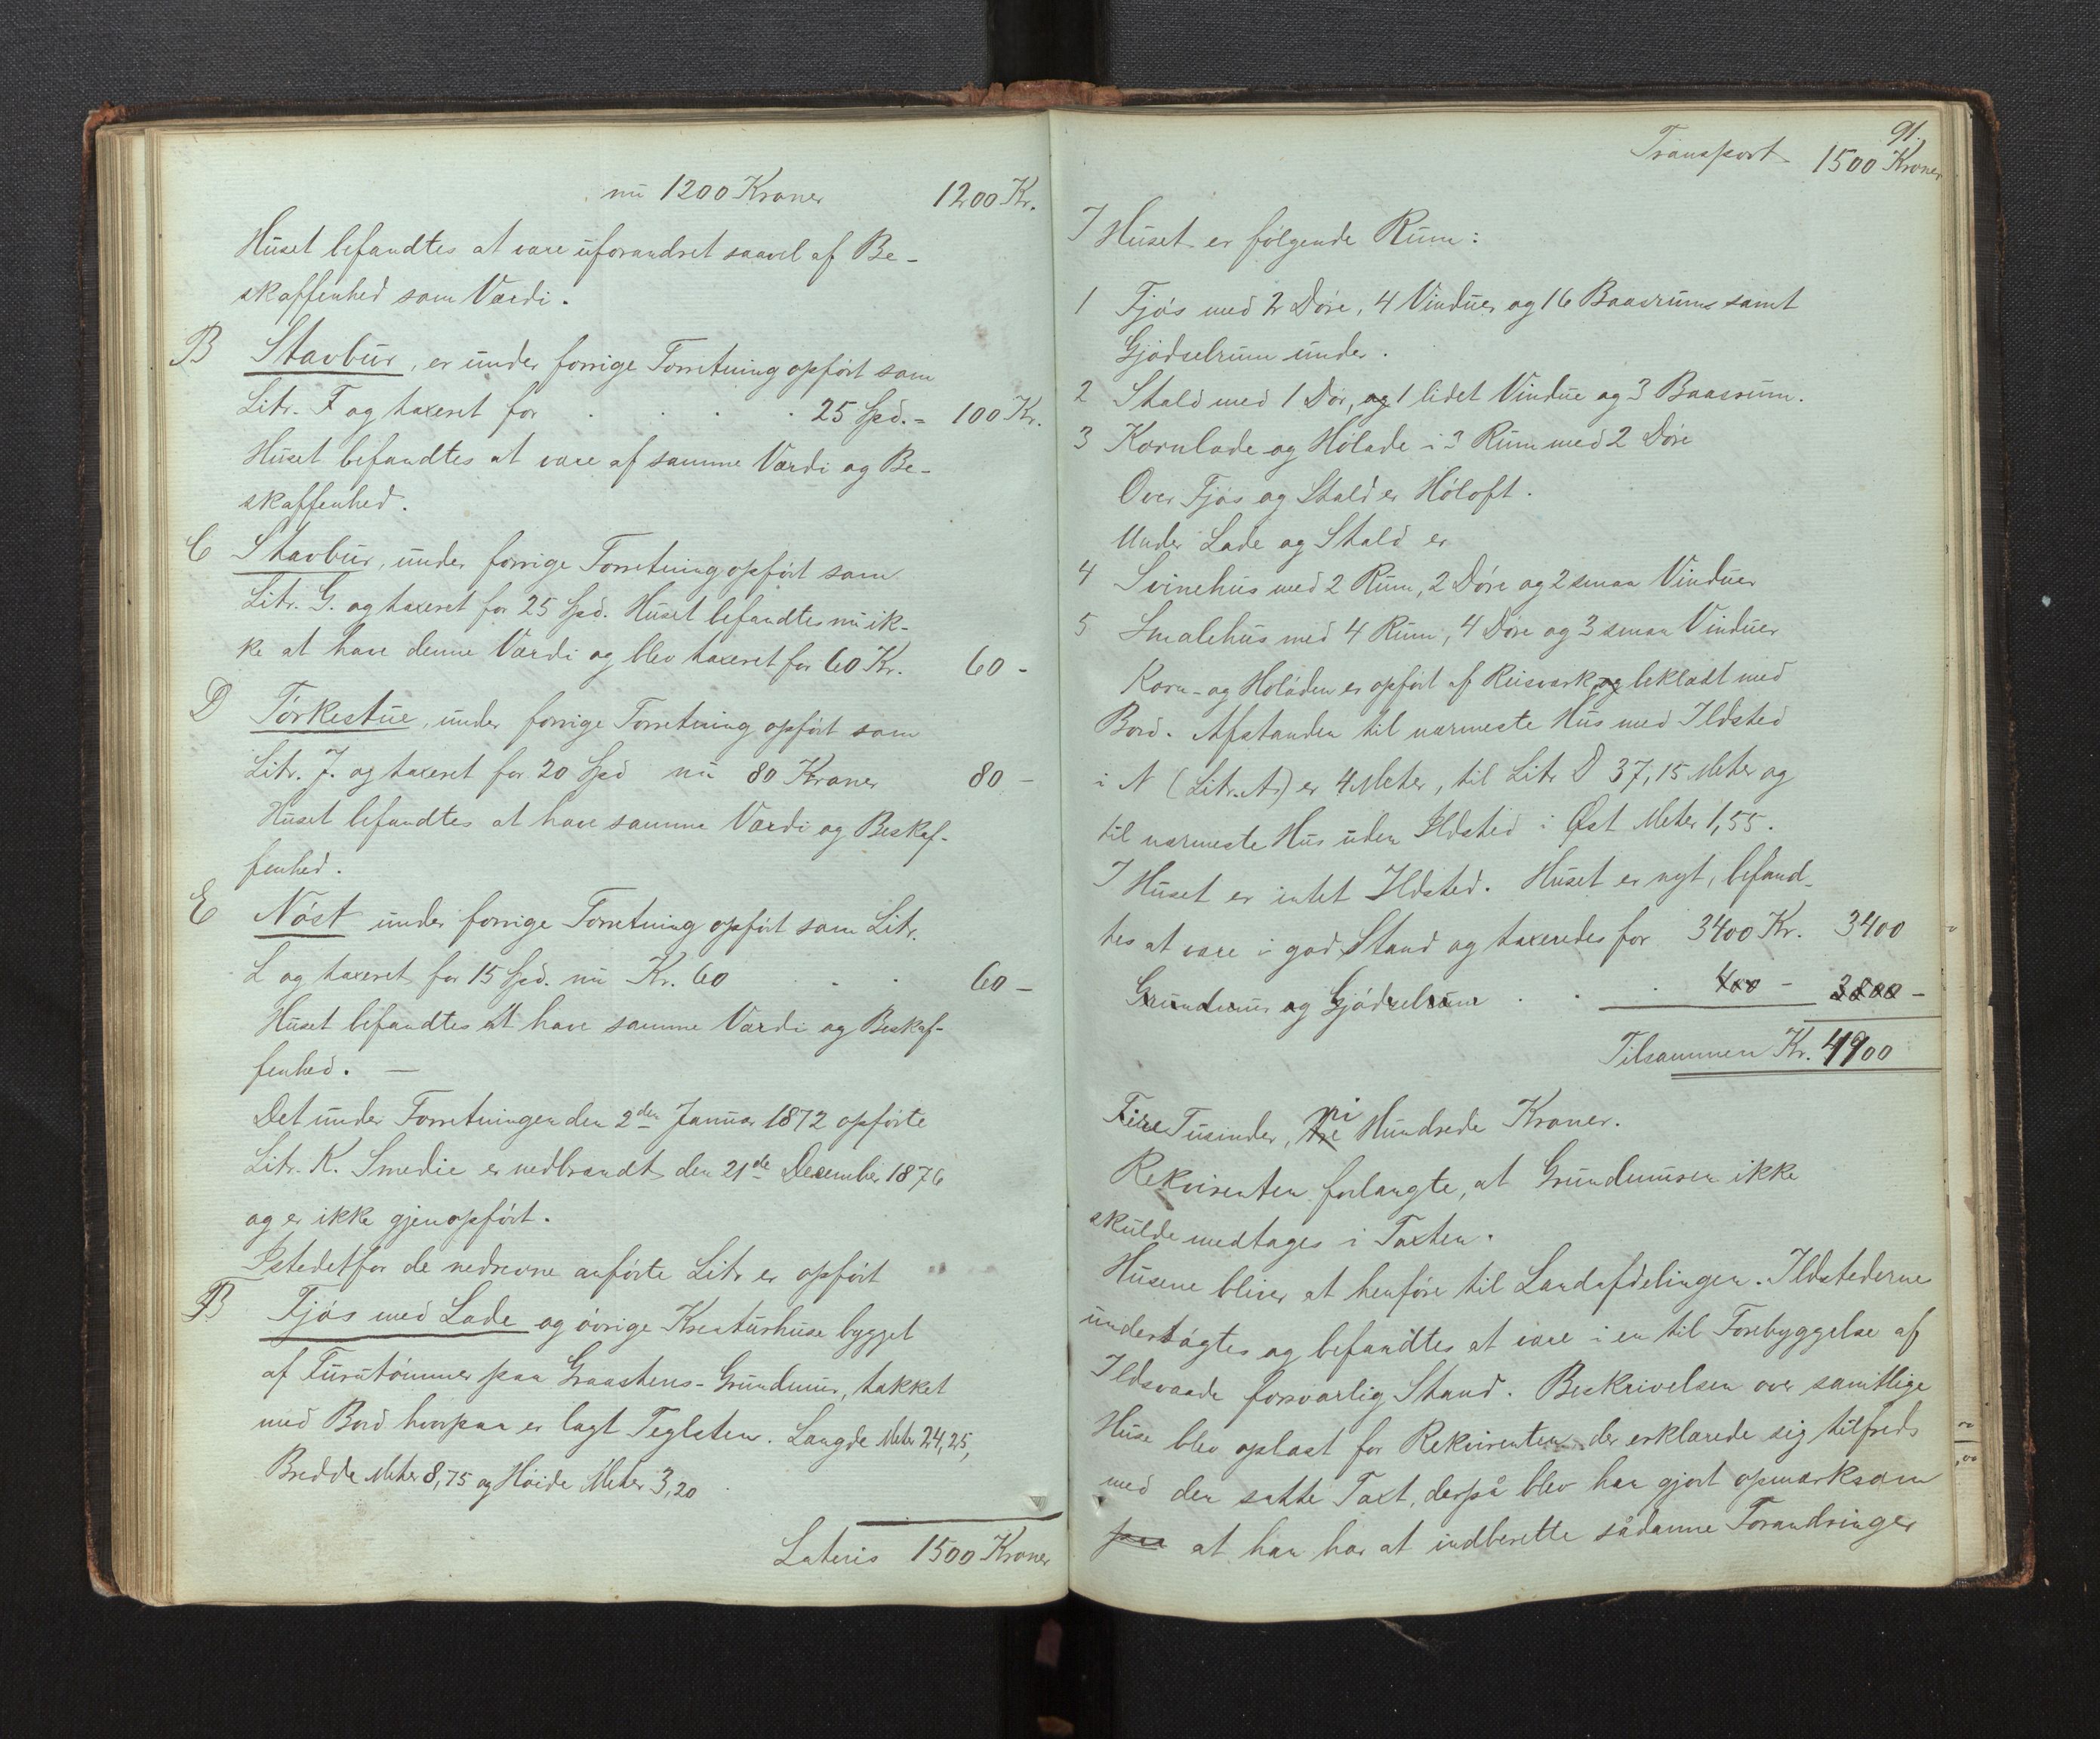 nu 1200 Kroner 1200 Kr.
Huset befandtes at være uforandret saavel af Be-
skaffenhed som Værdi.
B Stavbur, er under forrige Forretning opført som
Litr. F og taxeret for . . . . 25 Spd. = 100 Kr.
Huset befandtes at være af samme Værdi og Be-
skaffenhed.
C Stavbur, under forrige Forretning opført som
Litr. G. og taxeret for 25 Spd. Huset befandtes nu ik-
ke at have denne Værdi og blev taxeret for 60 Kr. 60 -
D Tørkestue, under forrige Forretning opført som
Litr. J. og taxeret for 20 Spd nu 80 Kroner 80 -
Huset befandtes at have samme Værdi og Beskaf-
fenhed.
E Nøst under forrige Forretning opført som Litr.
L og taxeret for 15 Spd. nu Kr. 60 . . . 60 -
Huset befandtes at have samme Værdi og Beskaf-
fenhed. —
Det under Forretningen den 2den Januar 1872 opførte
Litr. K. Smedie er nedbrandt den 21de December 1876
og er ikke gjenopført.
Istedetfor de nedrevne anførte Litr er opført
F Fjøs med Lade og øvrige Kreaturhuse bygget
af Furutømmer paa Graastens-Grundmur, takket
med Bord hvorpaa er lagt Teglsten. Længde Meter 24,25,
Bredde Meter 8,75 og Høide Meter 3,20
Lateris 1500 Kroner
91.
Transport 1500 Kroner
I Huset er følgende Rum:
1 Fjøs med 2 Døre, 4 Vinduer og 16 Baasrum samt
Gjødselrum under.
2 Stald med 1 Dør, og 1 lidet Vindue og 3 Baasrum.
3 Kornlade og Hølade i 3 Rum med 2 Døre
Over Fjøs og Stald er Høloft.
Under Lade og Stald er
4 Svinehus med 2 Rum, 2 Døre og 2 smaa Vinduer
5 Smalehus med 4 Rum, 4 Døre og 3 smaa Vinduer
Korn- og Høladen er opført af Reisværk og beklædt med
Bord. Afstanden til nærmeste Hus med Ildsted
i N (Litr. A) er 4 Meter, til Litr D 37,15 Meter og
til nærmeste Hus uden Ildsted i Øst Meter 1,55.
I Huset er intet Ildsted. Huset er nyt, befand-
tes at være i god Stand og taxeredes for 3400 Kr. 3400
Grundmur og Gjødselrum . . . 400 - 3800 -
Tilsammen Kr. 4900
Fire Tusinder, tre ni Hundrede Kroner.
Rekvirenten forlangte, at Grundmuren ikke
skulde medtages i Taxten.
Husene bliver at henføre til Landafdelingen. Ildstederne
undersøgtes og befandtes at være i en til Forebyggelse af
Ildsvaade forsvarlig Stand. Beskrivelsen over samtlige
Huse blev oplæst for Rekvirenten der erklærede sig tilfreds
med den satte Taxt, derpå blev han gjort opmærksom
paa at han har at indberette sådanne Forandringer